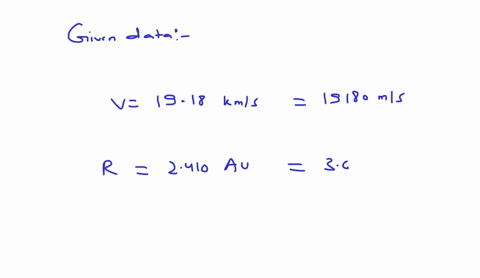 Given data:-
V= 19.18 km/s = 19180 m/s
R = 2.410 AU = 3.6